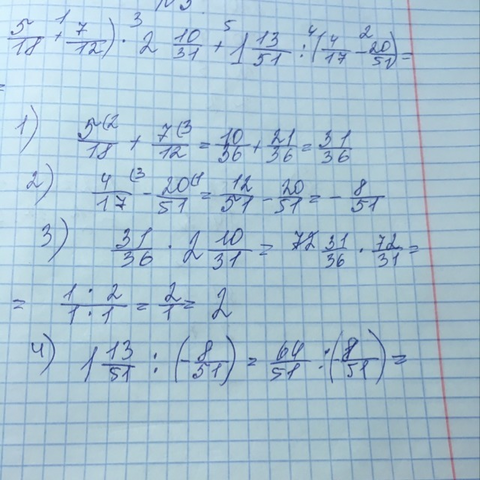 5/18 + 7/12) · 2 10/31 + 1 13/51 : (4/17 - 20/51) =
1) 5/18 + 7/12 = 10/36 + 21/36 = 31/36
2) 4/17 - 20/51 = 12/51 - 20/51 = - 8/51
3) 31/36 · 2 10/31 = 31/36 · 72/31 =
= 1 · 2/1 · 1 = 2/1 = 2
4) 1 13/51 : (- 8/51) = 64/51 : (- 8/51) =